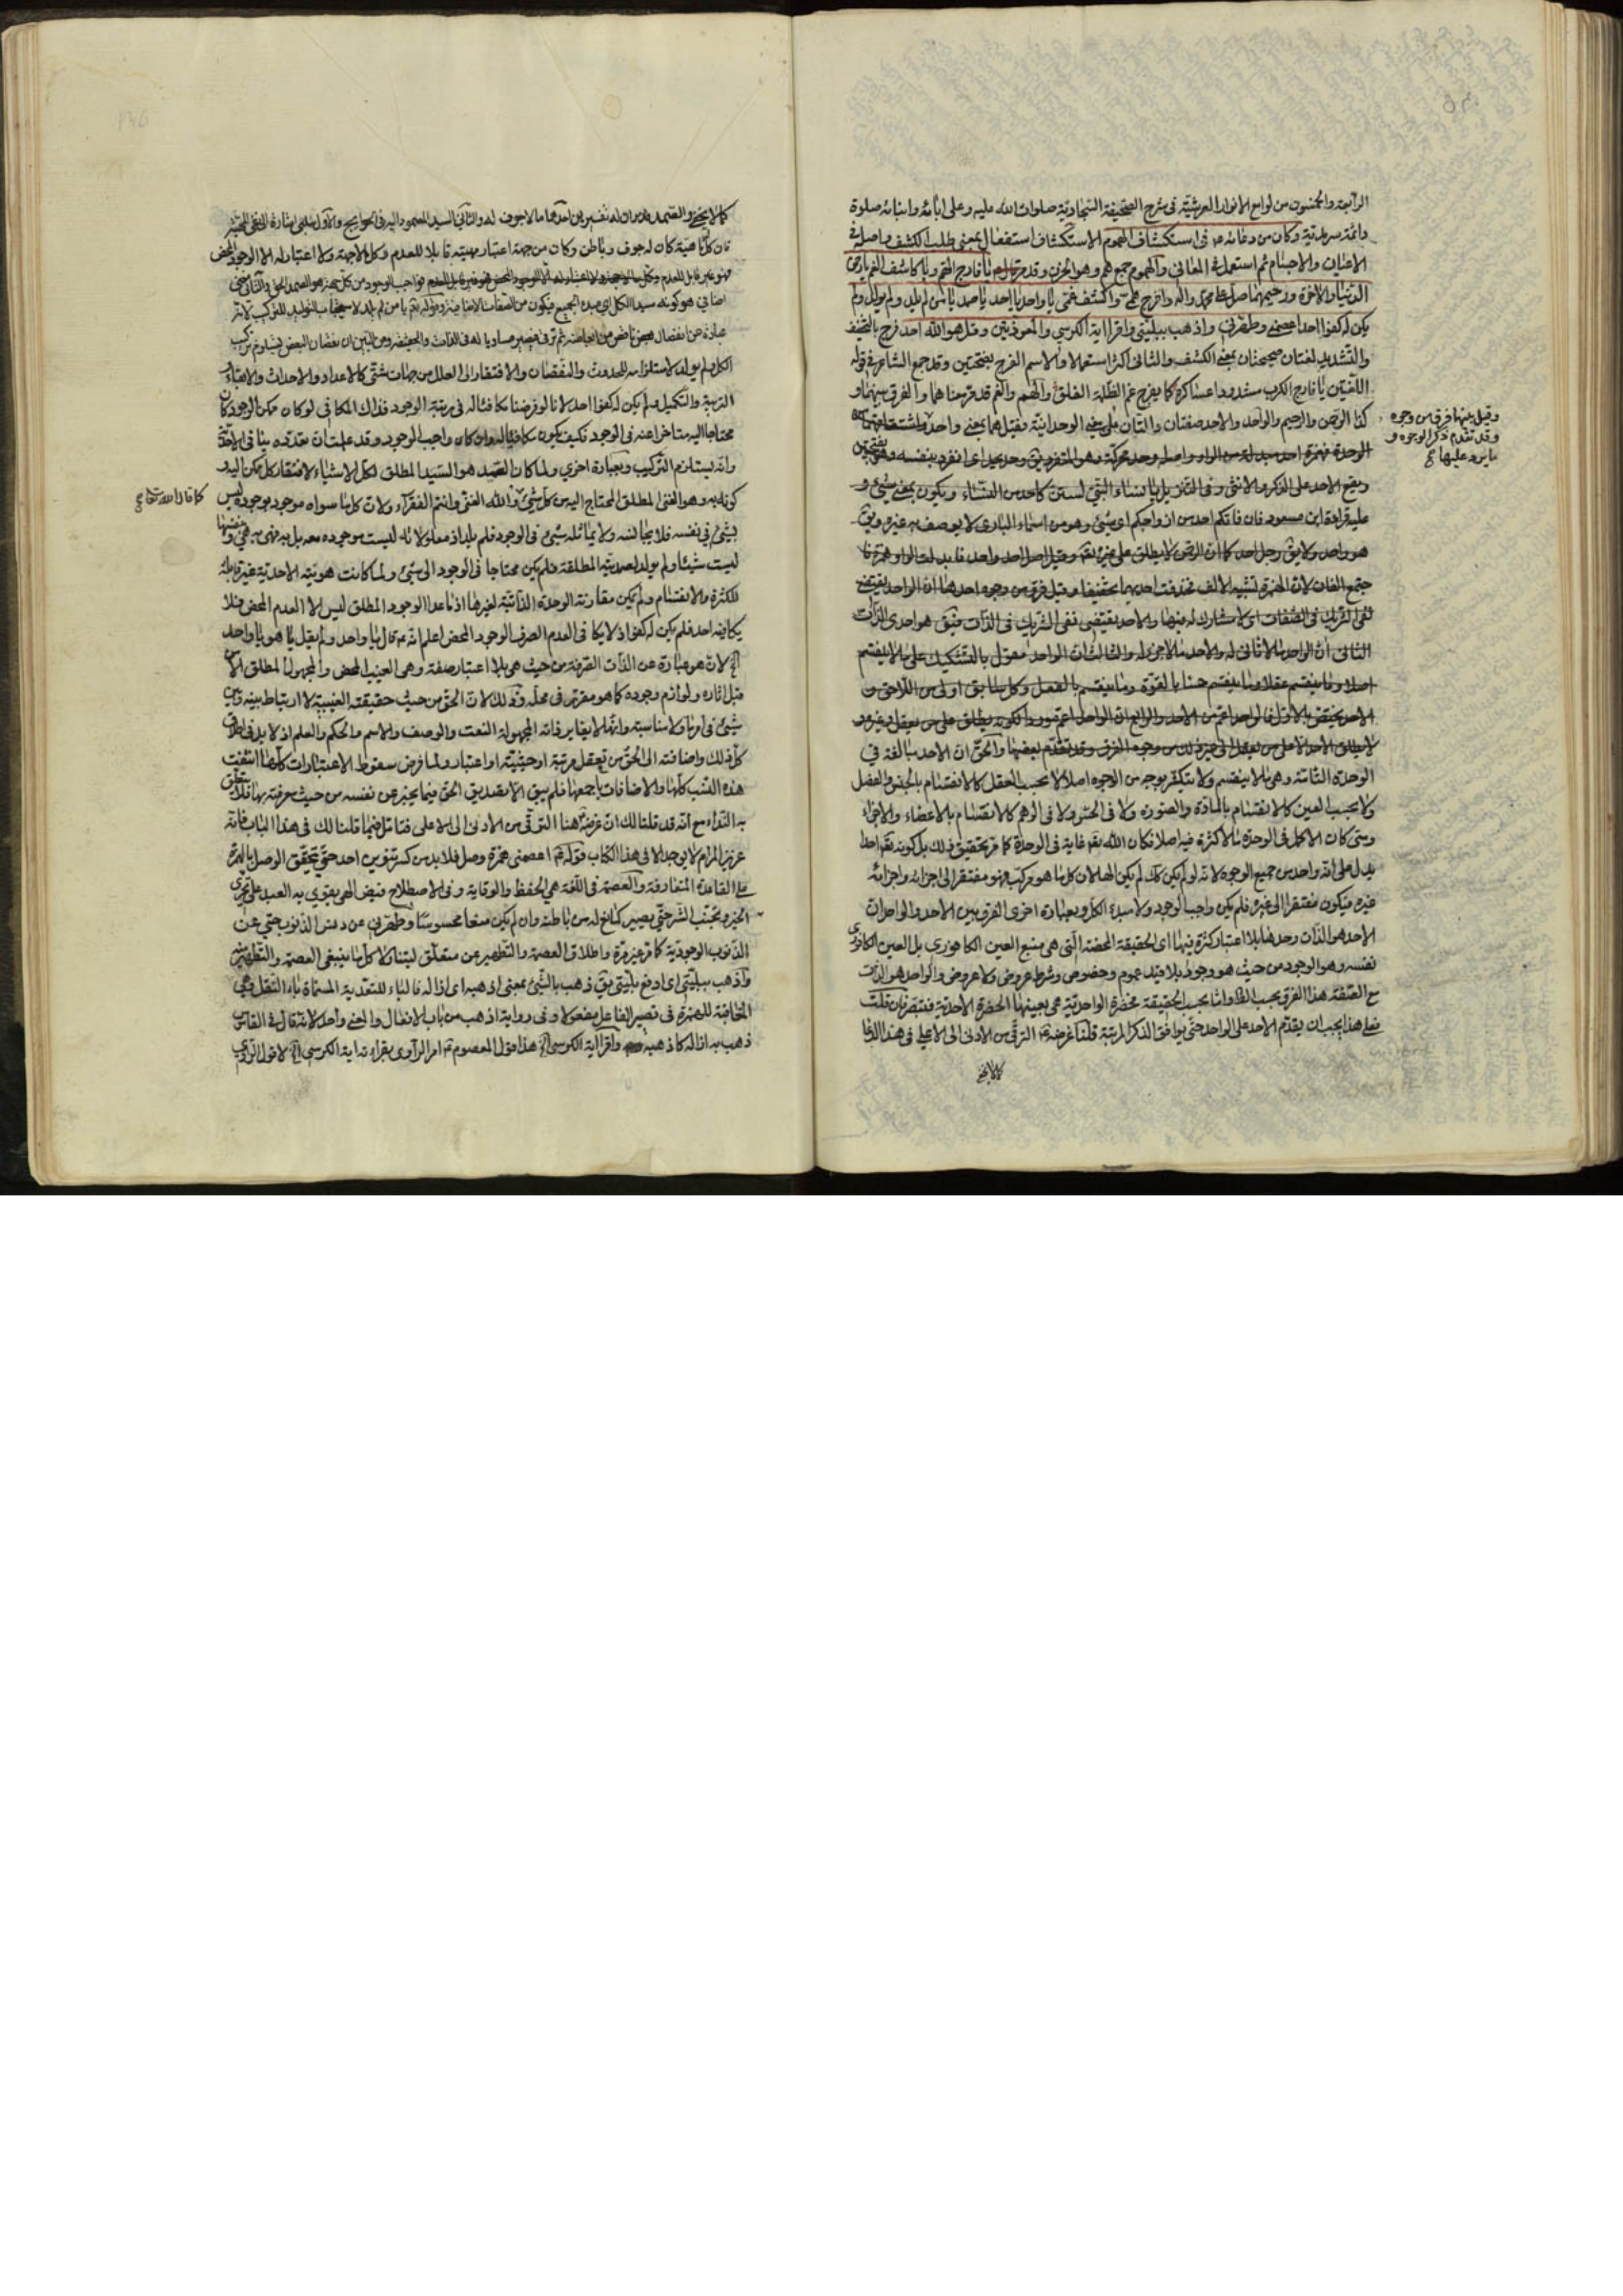 الرابعة والخمسون من لوامع الانوار العرشية في شرح الصحيفة السجادية صلوات الله عليه وعلى ابائه وابنائه صلوة
دائمة سرمدية وكان من دعائه ع في استكشاف الهموم الاستكشاف استفعال بمعنى طلب الكشف واصله في
الاعيان والاجسام ثم استعمل في المعاني والهموم جمع هم وهو الحزن وقد مر يا فارج الهم ويا كاشف الغم يا رحمن
الدنيا والاخرة ورحيمهما صل على محمد واله وافرج همي واكشف غمي يا واحد يا احد يا صمد يا من لم يلد ولم يولد ولم
يكن له كفوا احد اعصمني وطهرني واذهب ببليتي واقرأ اية الكرسي والمعوذتين وقل هو الله احد فرج بالتخفيف
والتشديد لغتان صحيحتان بمعنى الكشف والثاني اكثر استعمالا والاسم الفرج بفتحتين وقد جمع الشاعر في قوله
اللغتين يا فارج الكرب مسدودا عساكره كما يفرج غم الظلمة الفلق والهم والغم قد مر معناهما والفرق بينهما و
كذا الرحمن والرحيم والواحد والاحد صفتان دالتان على معنى الوحدانية وقيل هما بمعنى واحد واشتقاقهما من
الوحدة فهمزة احد مبدلة من الواو واصله وحد محركة وهو المتفرد يق وحد يحد اي انفرد بنفسه وهو بفتحتين
وقيل بينهما فرق من وجوه
وقد تقدم ذكر الوجوه و
ما يرد عليها
ويقع الاحد على الذكر والانثى وفي التنزيل يا نساء النبي لستن كاحد من النساء ويكون بمعنى شيء و
عليه قراءة ابن مسعود فان فاتكم احد من ازواجكم اي شيء وهو من اسماء الباري لا يوصف به غيره ويق
هو واحد ولا يق رجل احد كما ان الرحمن لا يطلق على غيره تقه وقيل اصل احد واحد فابدلت الواو همزة فا
جتمع الفان لان الهمزة تشبه الالف فحذفت احديهما تخفيفا وقيل فرق من وجوه احدها ان الواحد يقتضي
نفي الشريك في الصفات اي لا مشارك له فيها والاحد يقتضي نفي الشريك في الذات فيق هو احدي الذات
الثاني ان الواحد ما لا ثاني له والاحد ما لا جزء له والثالث ان الواحد مقول بالتشكيك على ما لا ينقسم
اصلا وما ينقسم عقلا وما ينقسم حسا بالقوة وما ينقسم بالفعل وكل سابق اولى من اللاحق و
الاحد يختص بالاول فالواحد اعم من الاحد والرابع ان الواحد اعم موردا لكونه يطلق على من يعقل وغيره و
لا يطلق الاحد الا على من يعقل الى غير ذلك من وجوه الفرق وقد تقدم بعضها والحق ان الاحد مبالغة في
الوحدة التامة وهي ما لا ينقسم ولا يتكثر بوجه من الوجوه اصلا لا بحسب العقل كالانقسام بالجنس والفصل
ولا بحسب العين كالانقسام بالمادة والصورة ولا في الحس ولا في الوهم كالانقسام بالاعضاء والاجزاء
ومتى كان الاكمل في الوحدة ما لا كثرة فيه اصلا فكان الله تقه غاية في الوحدة كما مر تحقيق ذلك بل كونه تقه احدا
يدل على انه واحد من جميع الوجوه لانه لو لم يكن كك لم يكن الها لان كل ما هو مركب فهو مفتقر الى اجزائه واجزائه
غيره فيكون مفتقرا الى غيره فلم يكن واجب الوجود ولا مبدء الكل وبعبارة اخرى الفرق بين الاحد والواحد ان
الاحد هو الذات وحدها بلا اعتبار كثرة فيها اي الحقيقة المحضة التي هي منبع العين الكافوري بل العين الكافوري
نفسه وهو الوجود من حيث هو وجود بلا قيد عموم وخصوص وشرط عروض ولا عروض والواحد هو الذات
مع الصفة هذا الفرق بحسب الظ واما بحسب الحقيقة فحضرة الواحدية هي بعينها الحضرة الاحدية فتبصر فان قلت
فعلى هذا يجب ان يقدم الاحد على الواحد حتى يوافق الذكر المرتبة قلنا غرضه ع الترقي من الادنى الى الاعلى في هذا الدعا
كما لا يخفى
كما لا يخفى والصمد قد مر ان له تفسيرين احدهما ما لا جوف له والثاني السيد المصمود اليه في الحوايج والاول سلبي اشارة الى نفي المهية
فان كل ما له مهية كان له جوف وباطن وكان من جهة اعتبار مهيته قابلا للعدم وكل ما لا جهة ولا اعتبار له الا الوجود المحض
فهو غير قابل للعدم فواجب الوجود من كل جهة هو الصمد الحق والثاني معنى
اضافي هو كونه سيد الكل اي مبدء الجميع فيكون من الصفات الاضافية وقوله ع يا من لم يلد لاستيجاب التوليد للتركيب لانه
عبارة عن انفصال بعض ناقص من ابعاضه ثم ترقى فيصير مساويا له في الذات والحقيقة ومن البين ان نقصان البعض يستلزم تركب
الكل ولم يولد لاستلزامه للحدوث والنقصان والافتقار الى العلل من جهات شتى كالاعداد والاحداث والابقاء و
التربية والتكميل ولم يكن له كفوا احد لانا لو فرضنا مكافئا له في رتبة الوجود فذاك المكافي لو كان ممكن الوجود كان
محتاجا اليه متاخرا عنه في الوجود فكيف يكون مكافيا له وان كان واجب الوجود وقد علمت ان تعدده ينافي الاحدية
وانه يستلزم التركيب وبعبارة اخرى ولما كان الصمد هو السيد المطلق لكل الاشياء لافتقار كل ممكن اليه و
كونه به وهو الغني المطلق المحتاج اليه من كل شيء والله الغني وانتم الفقراء ولان كل ما سواه موجود بوجوده ليس
كما قال الله تعالى
بشيء في نفسه فلا يجانسه ولا يماثله شيء في الوجود فلم يلد اذ معلولاته ليست موجودة معه بل به فهي به هي وبنفسها
ليست شيئا ولم يولد لصمديته المطلقة فلم يكن محتاجا في الوجود الى شيء ولما كانت هويته الاحدية غير قابلة
للكثرة والانقسام ولم يكن مقارنة الوحدة الذاتية لغيرها اذ ما عدا الوجود المطلق ليس الا العدم المحض فلا
يكافيه احد فلم يكن له كفوا اذ لا يكافي العدم الصرف الوجود المحض اعلم انه ع قال يا واحد ولم يقل يا هو يا واحد
الخ لان هو عبارة عن الذات الصرفة من حيث هي بلا اعتبار صفة وهي الغيب المحض والمجهول المطلق الا من
قبل اثاره ولوازم وجوده كما هو مقرر في محله وذلك لان الحق من حيث حقيقته الغيبية لا ارتباط بينه وبين
شيء في امر ما ولا مناسبة وانها لا يغاير ذاته المجهولة النعت والوصف والاسم والحكم والعلم اذ لا بد في اطلاق
كل ذلك واضافته الى الحق من تعقل مرتبة او حيثية او اعتبار ولما فرض سقوط الاعتبارات كلها انتفت
هذه النسب كلها والاضافات باجمعها فلم يبق الا تصديق الحق فيما يخبر عن نفسه من حيث معرفته بها فلا يتعلق
به النداء مع انه قد قلنا لك ان غرضه ع هنا الترقي من الادنى الى الاعلى فتامل فيما قلنا لك في هذا الباب فانه
عزيز المرام لا يوجد الا في هذا الكتاب قوله ع اعصمني همزة وصل فلا بد من كسر تنوين احد حتى تحقق الوصل بالهمزة
على القاعدة المتعارفة والعصمة في اللغة هي الحفظ والوقاية وفي الاصطلاح فيض الهي يقوي به العبد على تحري
الخير وتجنب الشر حتى يصير كمانع له من باطنه وان لم يكن منعا محسوسا وطهرني عن دنس الذنوب حتى عن
الذنوب الوجودية كما مر غير مرة واطلاق العصمة والتطهير عن متعلق ليتناولا كل ما ينبغي العصمة والتطهير منه
واذهب ببليتي اي ادفع بليتي يق ذهب بالشيء بمعنى اذهبه اي ازاله فالباء للتعدية المسماة باء النقل وهي
المعاقبة للهمزة في تصيير الفاعل مفعولا وفي رواية اذهب من باب الافعال والمعنى واحد لانه قال في القاموس
ذهب به ازاله كاذهبه واقرأ اية الكرسي الخ هذا قول المعصوم ع امر الراوي بقراءته اية الكرسي الخ لا قول الراوي